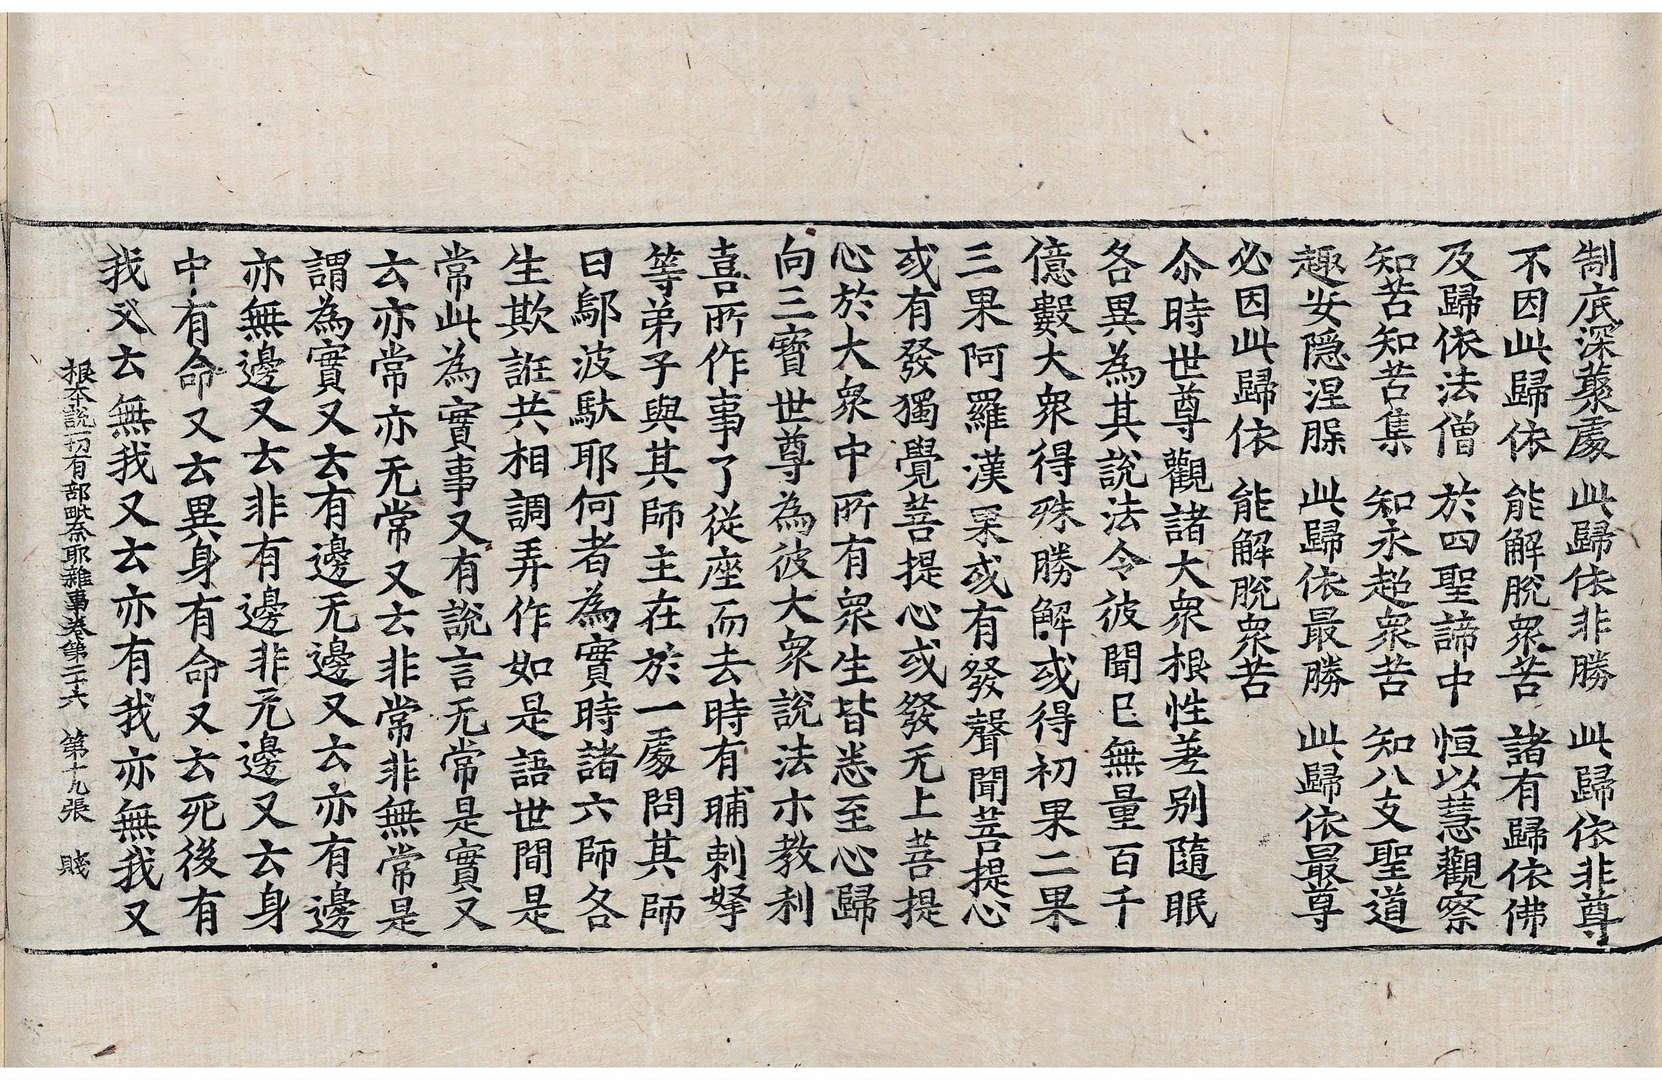 制底深藂處　此歸依非勝　此歸依非尊
不因此歸依　能解脫衆苦　諸有歸依佛
及歸依法僧　於四聖諦中　恒以慧觀察
知苦知苦集　知永超衆苦　知八支聖道
趣安隱涅脲　此歸依最勝　此歸依最尊
必因此歸依　能解脫衆苦
尒時世尊觀諸大衆根性差别隨眠
各異為其說法令彼聞已無量百千
億數大衆得殊勝解或得初果二果
三果阿羅漢果或有發聲聞菩提心
或有發獨覺菩提心或發无上菩提
心於大衆中所有衆生皆悉至心歸
向三寶世尊為彼大衆說法示教利
喜所作事了從座而去時有晡剌拏
等弟子與其師主在於一處問其師
曰鄔波馱耶何者為實時諸六師各
生欺誑共相調弄作如是語世間是
常此為實事又有說言无常是實又
云亦常亦无常又云非常非無常是
謂為實又云有邊无邊又云亦有邊
亦無邊又云非有邊非无邊又云身
中有命又云異身有命又云死後有
我又云無我又云亦有我亦無我又
根本說一切有部毗柰耶雜事卷第二十六　第十九張　賤